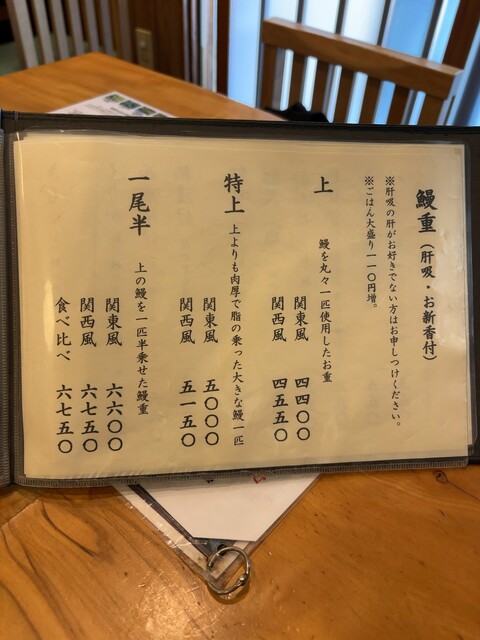 鰻重（肝吸・お新香付）
※肝吸の肝がお好きでない方はお申しつけください。
※ごはん大盛り一一〇円増。
上
鰻を丸々一匹使用したお重
関東風 四四〇〇
関西風 四五五〇
特上
上よりも肉厚で脂の乗った大きな鰻一匹
関東風 五〇〇〇
関西風 五一五〇
一尾半
上の鰻を一匹半乗せた鰻重
関東風 六六〇〇
関西風 六七五〇
食べ比べ 六七五〇